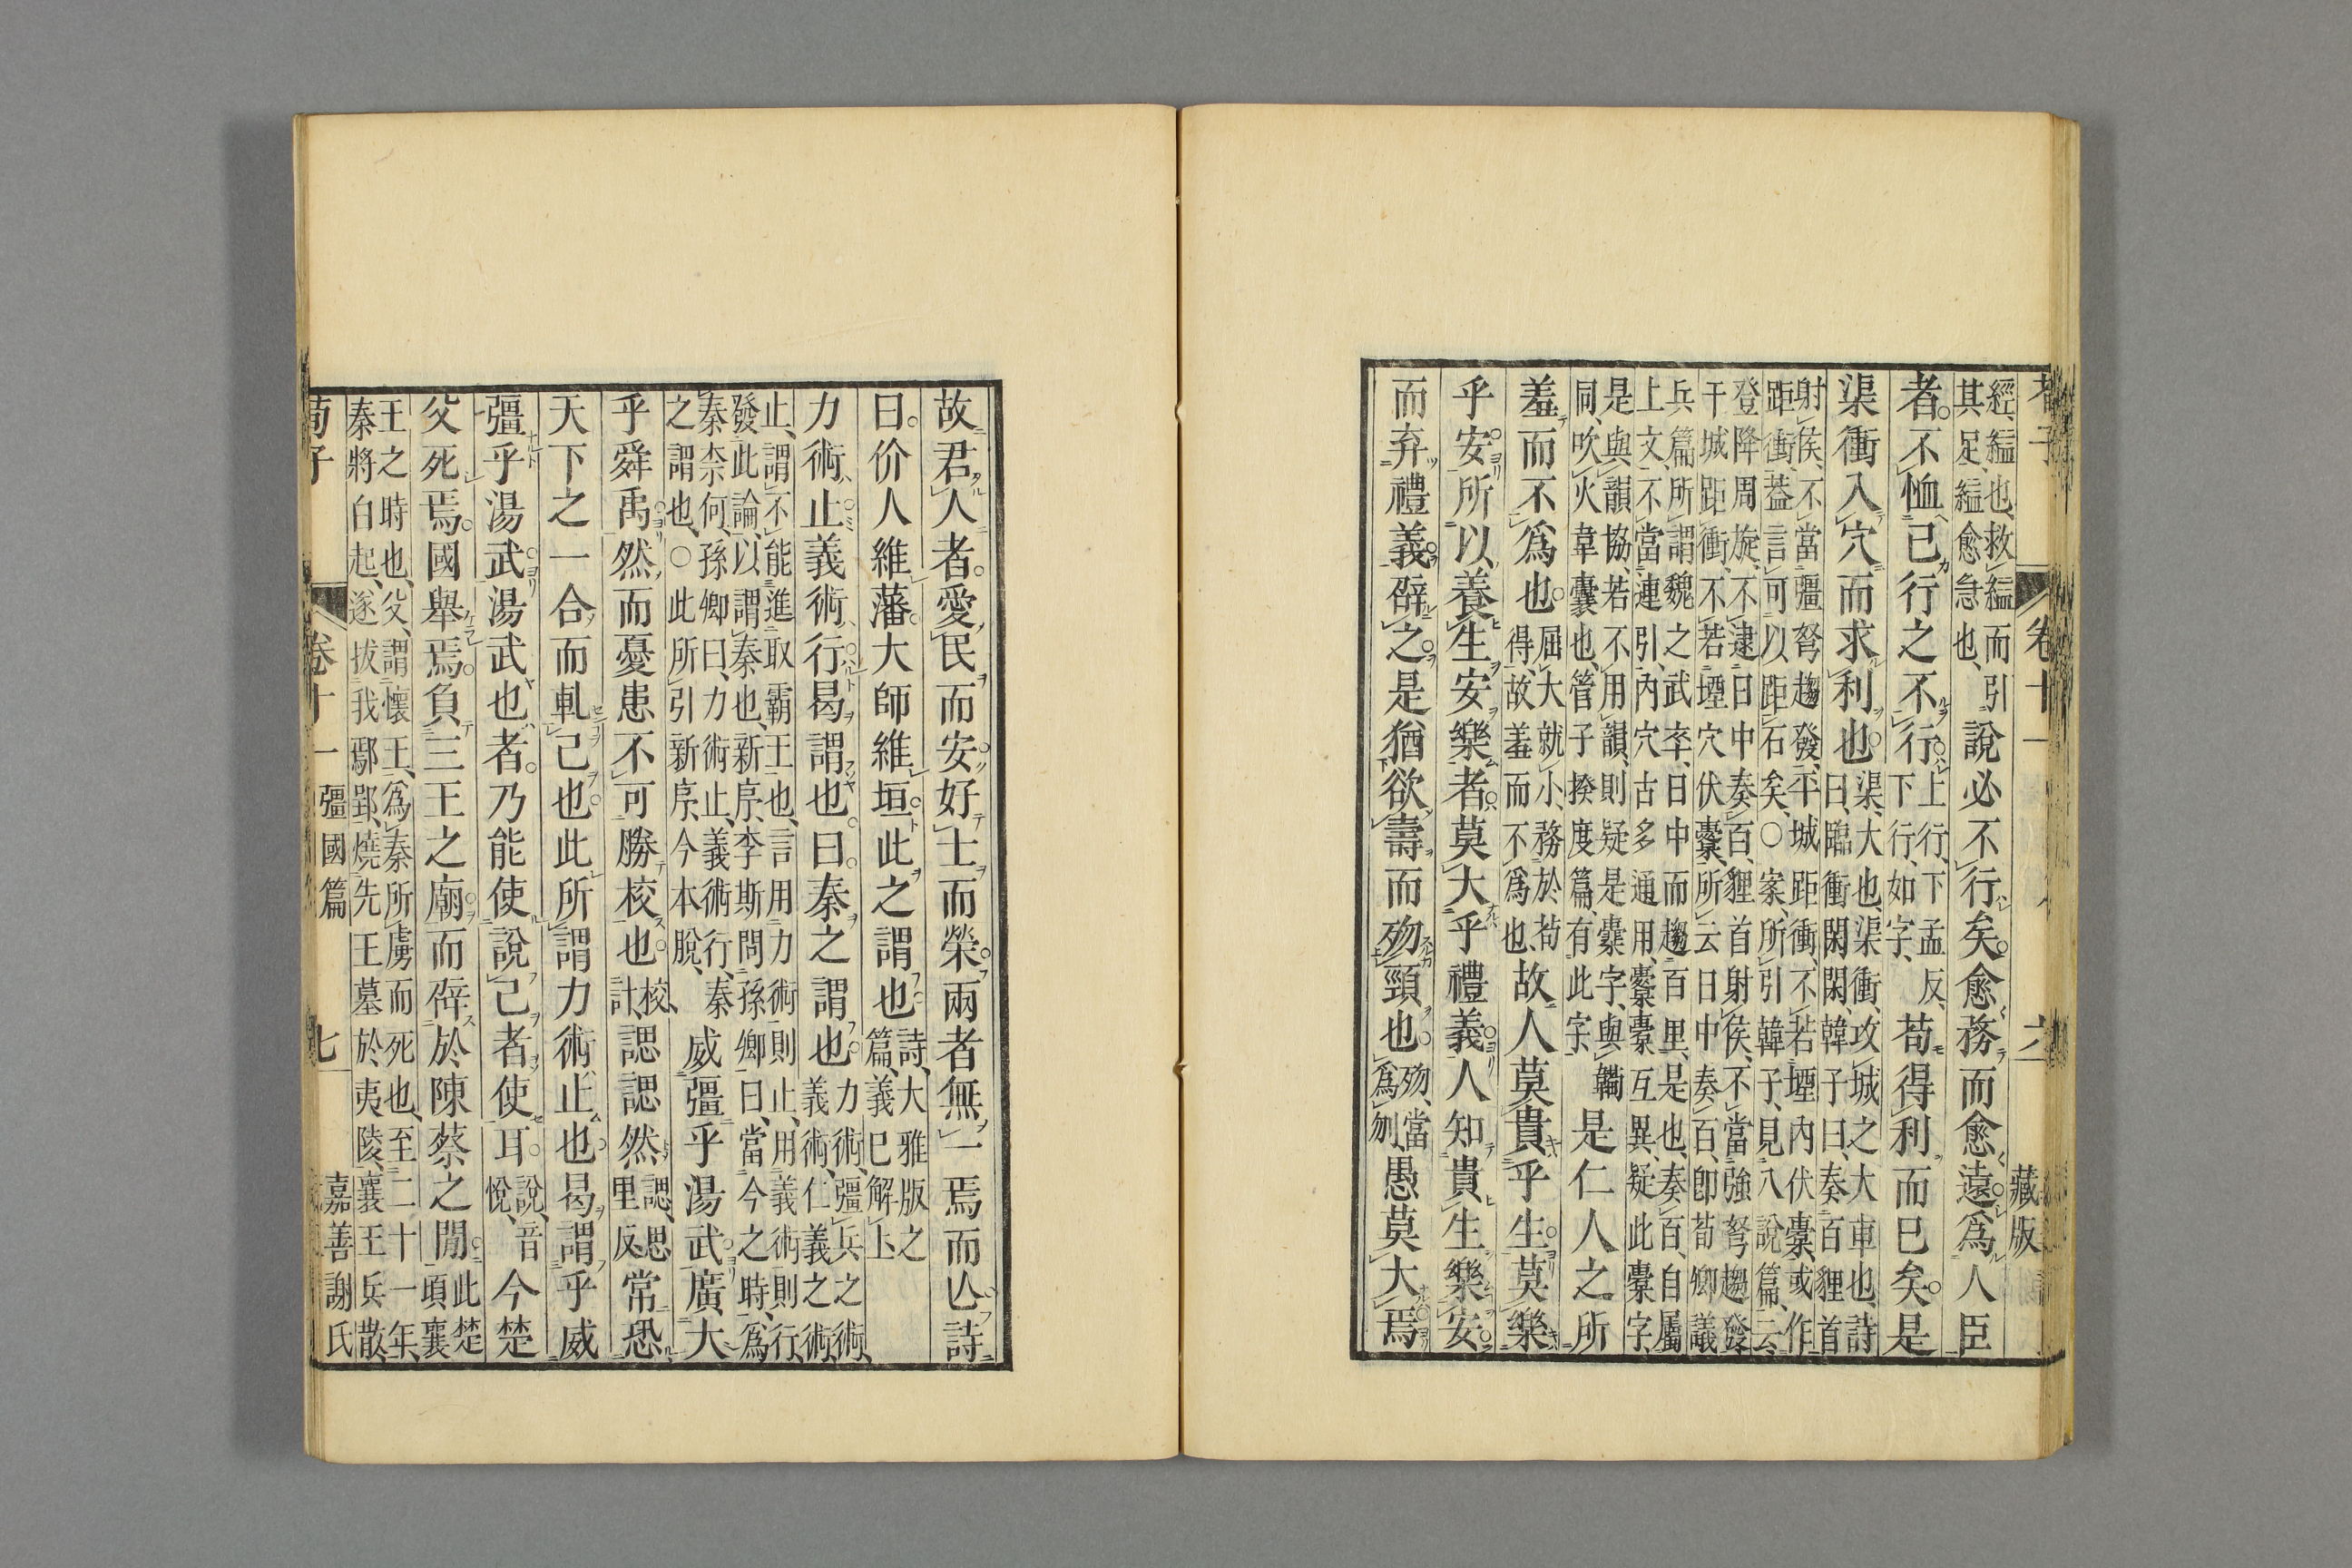 荀子 卷十一 六 藏版
經、縊也、救縊而引其足、縊愈急也、說必不行矣愈務而愈遠爲人臣
者不恤己行之不行上行、下孟反、下行、如字、苟得利而已矣是
渠衝入穴而求利也渠、大也、渠衝、攻城之大車也、詩曰、臨衝閑閑、韓子曰、奏百貍首
射侯、不當彊弩趨發、平城距衝、不若堙內伏橐、或作距衝、蓋言可以距石矣、○案、所引韓子、見八說篇、云、
登降周旋、不逮日中奏百、貍首射侯、不當強弩趨發、干城距衝、不若堙穴伏橐、所云日中奏百、卽荀卿議
兵篇、所謂魏之武卒、日中而趨百里、是也、奏百、自屬上文、不當連引、內穴古多通用、橐橐互異、疑此橐字、
是與韻協、若不用韻、則疑是橐字、與韛同、吹火韋囊也、管子揆度篇、有此字、是仁人之所
羞而不爲也屈大就小、務於苟得、故羞而不爲也、故人莫貴乎生莫樂
乎安所以養生安樂者莫大乎禮義人知貴生樂安
而弃禮義辟之是猶欲壽而歾頸也歾、當爲刎、愚莫大焉
故君人者愛民而安好士而榮兩者無一焉而亾詩
曰价人維藩大師維垣此之謂也詩、大雅版之篇、義已解上
力術止義術行曷謂也曰秦之謂也力術、彊兵之術、義術、仁義之術、
止、謂不能進取霸王也、言用力術則止、用義術則行、發此論、以謂秦也、新序、李斯問孫卿曰、當今之時、爲
秦柰何、孫卿曰、力術止、義術行、秦之謂也、○此所引新序、今本脫、威彊乎湯武廣大
乎舜禹然而憂患不可勝校也校、計、諰諰然諰、思里反、常恐
天下之一合而軋己也此所謂力術止也曷謂乎威
彊乎湯武湯武也者乃能使說己者使耳說、音悅、今楚
父死焉國舉焉負三王之廟而辟於陳蔡之閒此楚頃襄
王之時也、父、謂懷王、爲秦所虜而死也、至二十一年、秦將白起、遂拔我鄢郢、燒先王墓於夷陵、襄王兵散、
荀子 卷十一 彊國篇 七 嘉善謝氏